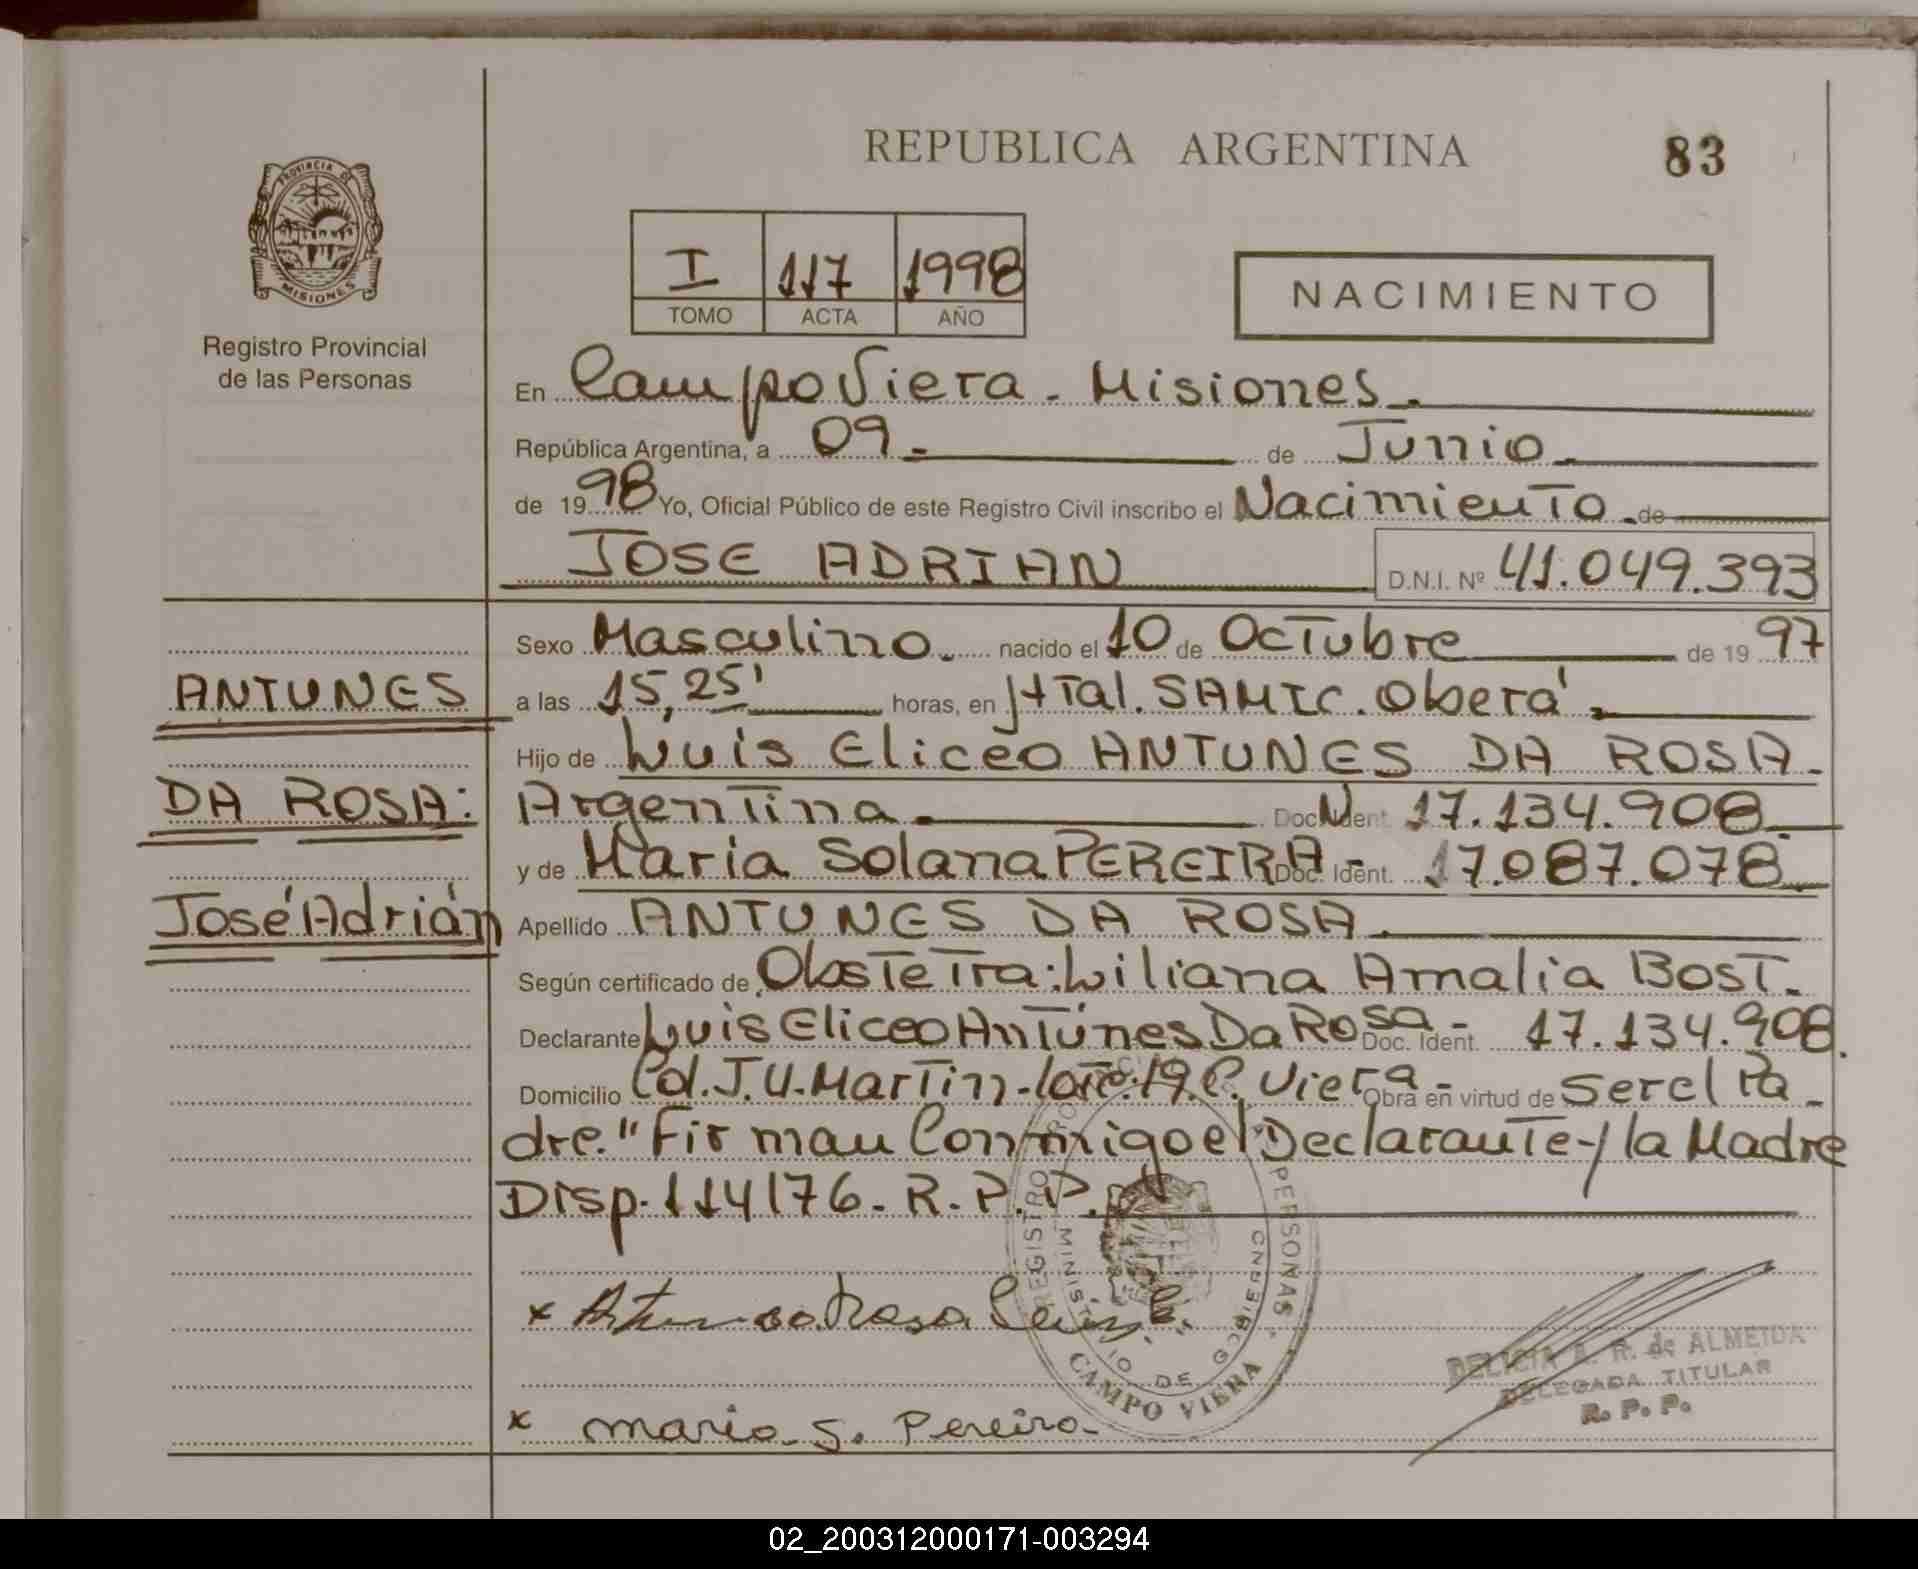 REPUBLICA ARGENTINA
83
PROVINCIA DE
MISIONES
Registro Provincial
de las Personas
I 117 1998
TOMO ACTA AÑO
NACIMIENTO
En Campo Viera - Misiones.
República Argentina, a 09 - de Junio
de 19 98 Yo, Oficial Público de este Registro Civil inscribo el Nacimiento de
JOSE ADRIAN D.N.I. Nº 41.049.393
Sexo Masculino. nacido el 10 de Octubre de 19 97
ANTUNES
a las 15,25' horas, en Htal. SAMIC. Oberá.
Hijo de Luis Eliceo ANTUNES DA ROSA -
DA ROSA:
Argentina Doc. Ident. 17.134.908.
y de Maria Solana PEREIRA - Doc. Ident. 17.087.078
José Adrián
Apellido ANTUNES DA ROSA
Según certificado de Obstetra: Liliana Amalia BOST.
Declarante Luis Eliceo Antúnes Da Rosa - Doc. Ident. 17.134.908.
Domicilio Col. J.U. Martin - lote: 19. C. Viera - Obra en virtud de ser el Pa
dre." Firman Conmigo el Declarante y la Madre
Disp. 114/76 - R. P. P.
REGISTRO PERSONAS
MINISTERIO DE GOBIERNO
CAMPO VIERA
x Antunes da Rosa Luis E.
DELICIA A. R. de ALMEIDA
DELEGADA TITULAR
R. P. P.
x maria S. Pereira
02_200312000171-003294